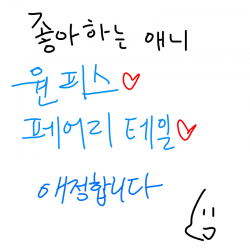 좋아하는 애니
원피스♥
페어리 테일♥
애정합니다